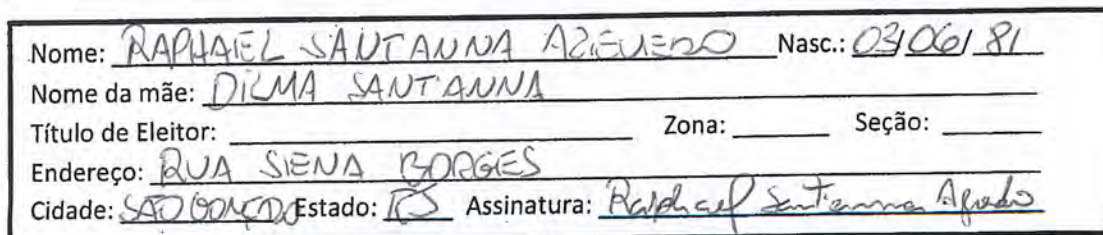 Nome: RAPHAEL SANTANNA AZEVEDO Nasc.: 03/06/81
Nome da mãe: DILMA SANT'ANNA
Título de Eleitor: Zona: Seção:
Endereço: RUA SIENA BORGES
Cidade: SÃO GONÇALO Estado: RJ Assinatura: Raphael Santanna Azevedo